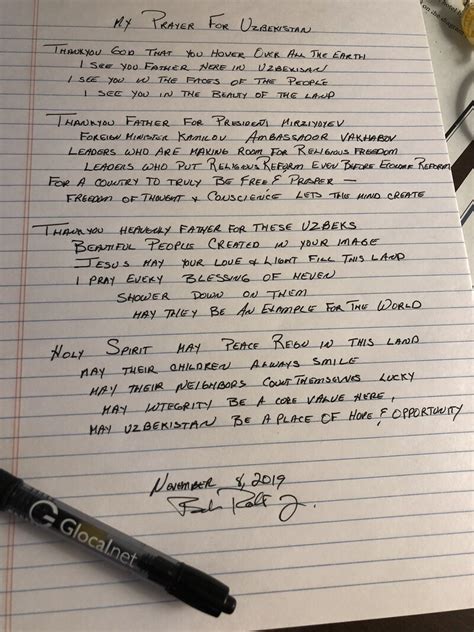 My Prayer For Uzbekistan
Thankyou God that you Hover Over All The Earth
I see you Father Here in Uzbekisan
I see you in the Faces of the People
I see you in the Beauty of the Land
Thankyou Father For President Mirziyoyev
Foreign Minister Kamilov Ambassador Vakhabov
Leaders who are making room for Religious Freedom
Leaders who put Religious Reform Even Before Economic Reform
For a country to truly Be Free & Prosper —
Freedom of Thought & Conscience Lets the mind create
Thank you Heavenly Father for these Uzbeks
Beautiful People Created in your image
Jesus may your love & Light fill this land
I pray Every Blessing of Heven
Shower Down on Them
May They Be An Example For The World
Holy Spirit may Peace Reign in this land
may their children Always smile
may their neighbors count themselves lucky
may integrity be a core value here,
may Uzbekistan Be a place of Hope & Opportunity
November 8, 2019
Glocalnet